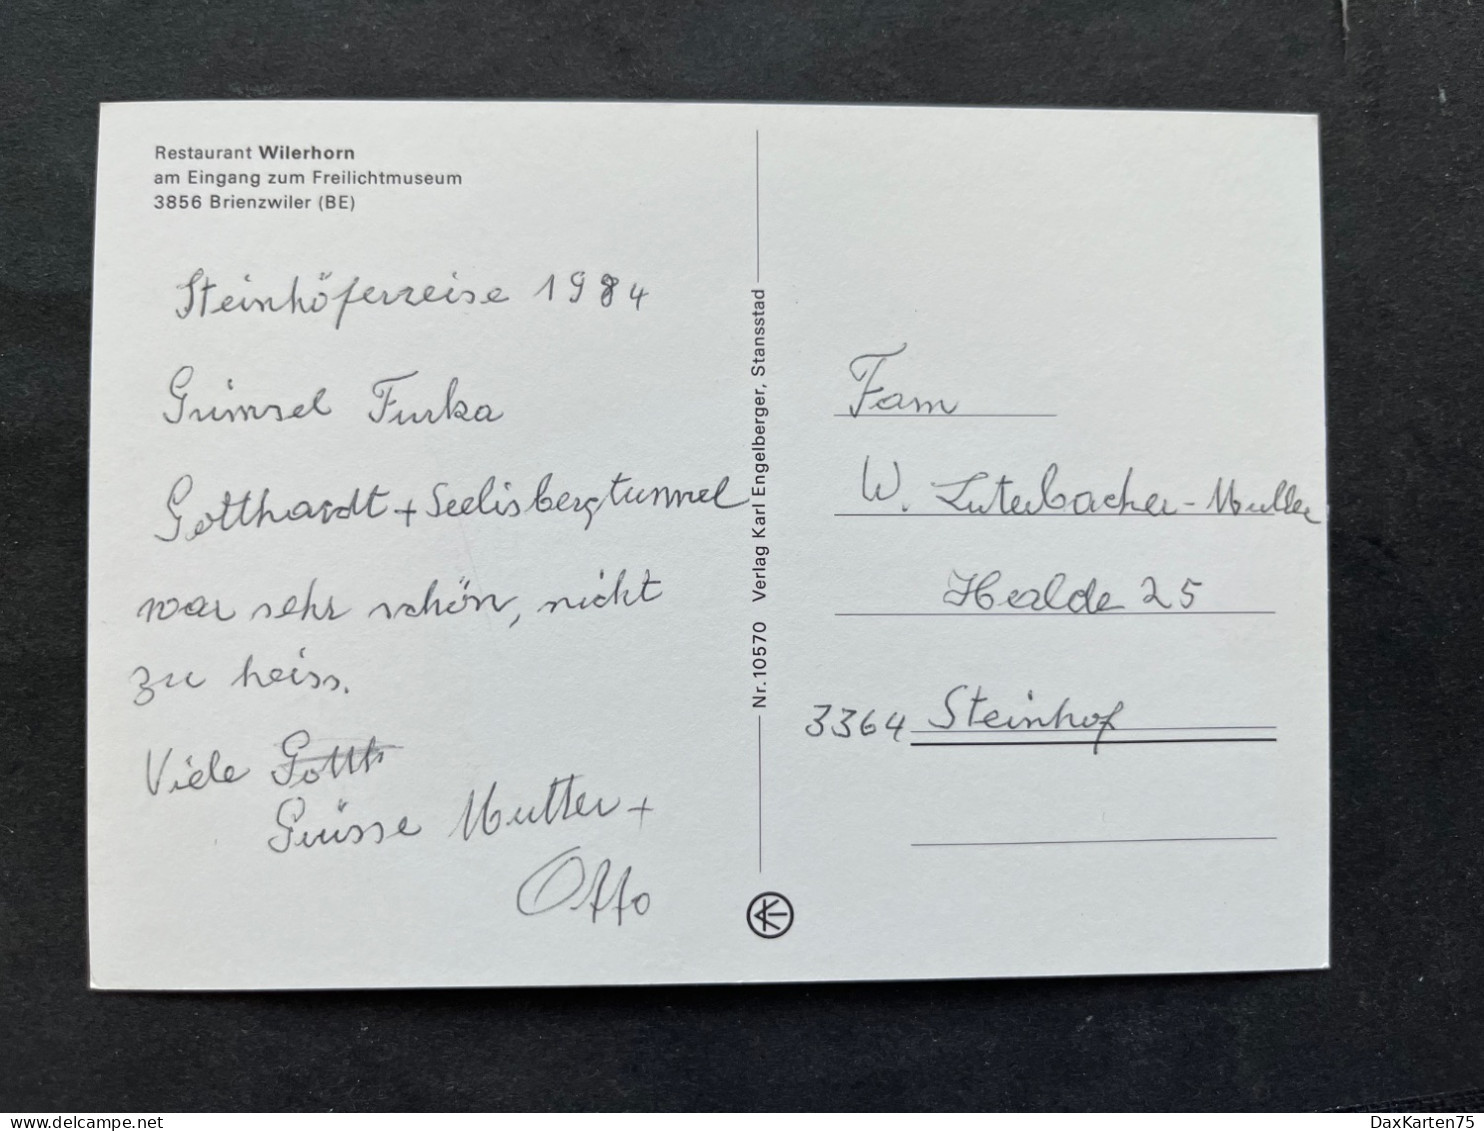 Restaurant Wilerhorn
am Eingang zum Freilichtmuseum
3856 Brienzwiler (BE)
Steinhöferreise 1984
Grimsel Furka
Gotthardt + Seelisbergtunnel
war sehr schön, nicht
zu heiss.
Viele Gotth
Grüsse Mutter +
Otto
Nr. 10570 Verlag Karl Engelberger, Stansstad
Fam
W. Luterbacher-Muller
Halde 25
3364 Steinhof
DaxKarten75